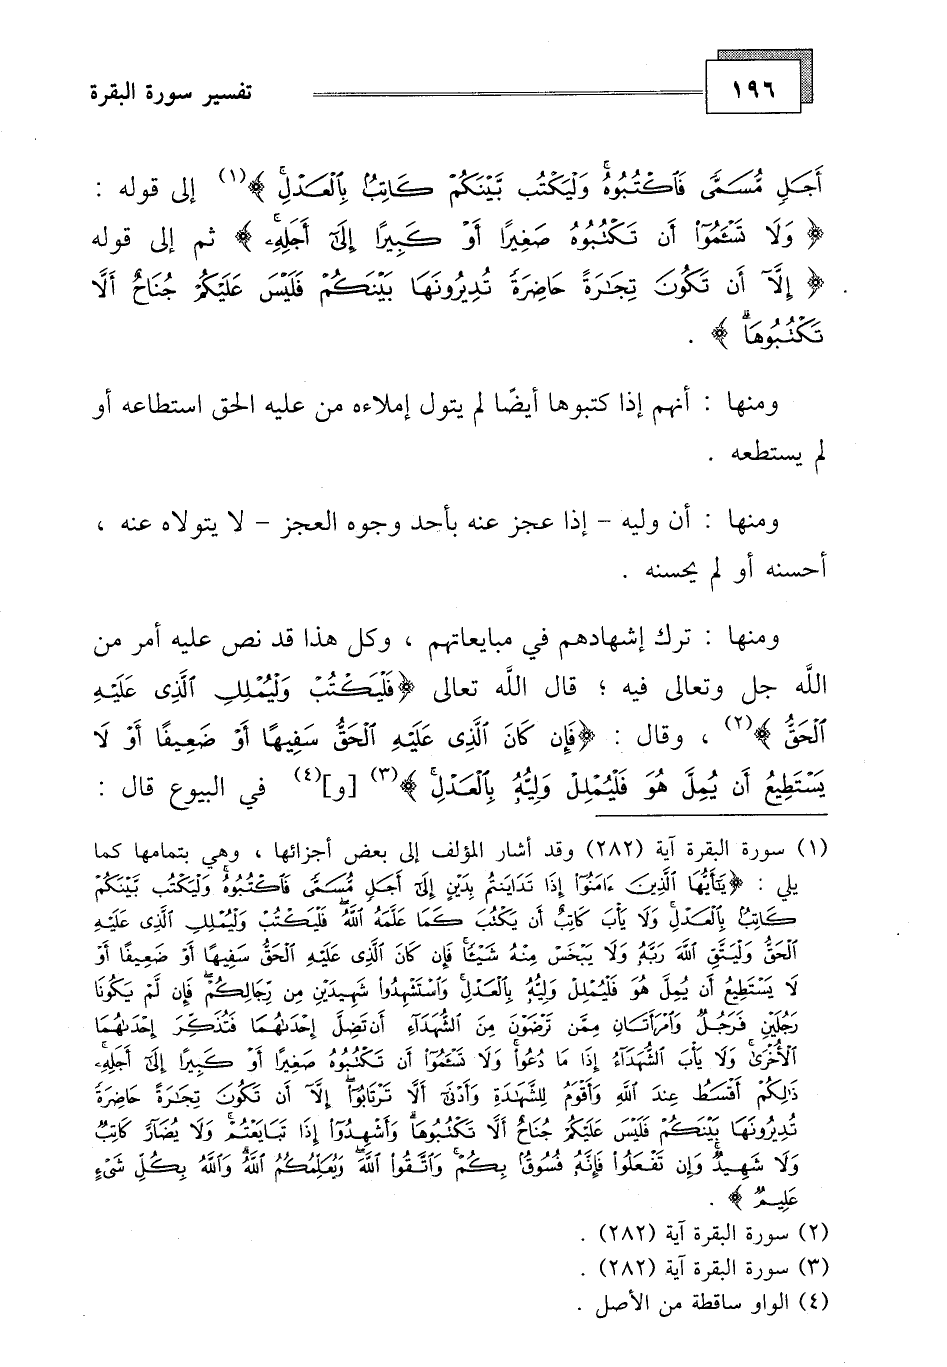 ١٩٦ تفسير سورة البقرة
أَجَلٍ مُّسَمًّى فَٱكْتُبُوهُ ۚ وَلْيَكْتُب بَّيْنَكُمْ كَاتِبٌۢ بِٱلْعَدْلِ ۚ ﴾(١) إلى قوله :
﴿ وَلَا تَسْـَٔمُوٓا۟ أَن تَكْتُبُوهُ صَغِيرًا أَوْ كَبِيرًا إِلَىٰٓ أَجَلِهِۦ ۚ ﴾ ثم إلى قوله
﴿ إِلَّآ أَن تَكُونَ تِجَـٰرَةً حَاضِرَةً تُدِيرُونَهَا بَيْنَكُمْ فَلَيْسَ عَلَيْكُمْ جُنَاحٌ أَلَّا
تَكْتُبُوهَا ۗ ﴾ .
ومنها : أنهم إذا كتبوها أيضًا لم يتول إملاءه من عليه الحق استطاعه أو
لم يستطعه .
ومنها : أن وليه - إذا عجز عنه بأحد وجوه العجز - لا يتولاه عنه ،
أحسنه أو لم يحسنه .
ومنها : ترك إشهادهم في مبايعاتهم ، وكل هذا قد نص عليه أمر من
اللَّه جل وتعالى فيه ؛ قال اللَّه تعالى ﴿فَلْيَكْتُبْ وَلْيُمْلِلِ ٱلَّذِى عَلَيْهِ
ٱلْحَقُّ ﴾(٢) ، وقال : ﴿فَإِن كَانَ ٱلَّذِى عَلَيْهِ ٱلْحَقُّ سَفِيهًا أَوْ ضَعِيفًا أَوْ لَا
يَسْتَطِيعُ أَن يُمِلَّ هُوَ فَلْيُمْلِلْ وَلِيُّهُۥ بِٱلْعَدْلِ ۚ ﴾(٣) [و](٤) في البيوع قال :
(١) سورة البقرة آية (٢٨٢) وقد أشار المؤلف إلى بعض أجزائها ، وهي بتمامها كما
يلي : ﴿يَـٰٓأَيُّهَا ٱلَّذِينَ ءَامَنُوٓا۟ إِذَا تَدَايَنتُم بِدَيْنٍ إِلَىٰٓ أَجَلٍ مُّسَمًّى فَٱكْتُبُوهُ ۚ وَلْيَكْتُب بَّيْنَكُمْ
كَاتِبٌۢ بِٱلْعَدْلِ ۚ وَلَا يَأْبَ كَاتِبٌ أَن يَكْتُبَ كَمَا عَلَّمَهُ ٱللَّهُ ۚ فَلْيَكْتُبْ وَلْيُمْلِلِ ٱلَّذِى عَلَيْهِ
ٱلْحَقُّ وَلْيَتَّقِ ٱللَّهَ رَبَّهُۥ وَلَا يَبْخَسْ مِنْهُ شَيْـًٔا ۚ فَإِن كَانَ ٱلَّذِى عَلَيْهِ ٱلْحَقُّ سَفِيهًا أَوْ ضَعِيفًا أَوْ
لَا يَسْتَطِيعُ أَن يُمِلَّ هُوَ فَلْيُمْلِلْ وَلِيُّهُۥ بِٱلْعَدْلِ ۚ وَٱسْتَشْهِدُوا۟ شَهِيدَيْنِ مِن رِّجَالِكُمْ ۖ فَإِن لَّمْ يَكُونَا
رَجُلَيْنِ فَرَجُلٌ وَٱمْرَأَتَانِ مِمَّن تَرْضَوْنَ مِنَ ٱلشُّهَدَآءِ أَن تَضِلَّ إِحْدَىٰهُمَا فَتُذَكِّرَ إِحْدَىٰهُمَا
ٱلْأُخْرَىٰ ۚ وَلَا يَأْبَ ٱلشُّهَدَآءُ إِذَا مَا دُعُوا۟ ۚ وَلَا تَسْـَٔمُوٓا۟ أَن تَكْتُبُوهُ صَغِيرًا أَوْ كَبِيرًا إِلَىٰٓ أَجَلِهِۦ ۚ
ذَٰلِكُمْ أَقْسَطُ عِندَ ٱللَّهِ وَأَقْوَمُ لِلشَّهَـٰدَةِ وَأَدْنَىٰٓ أَلَّا تَرْتَابُوٓا۟ ۖ إِلَّآ أَن تَكُونَ تِجَـٰرَةً حَاضِرَةً
تُدِيرُونَهَا بَيْنَكُمْ فَلَيْسَ عَلَيْكُمْ جُنَاحٌ أَلَّا تَكْتُبُوهَا ۗ وَأَشْهِدُوٓا۟ إِذَا تَبَايَعْتُمْ ۚ وَلَا يُضَآرَّ كَاتِبٌ
وَلَا شَهِيدٌ ۚ وَإِن تَفْعَلُوا۟ فَإِنَّهُۥ فُسُوقٌۢ بِكُمْ ۗ وَٱتَّقُوا۟ ٱللَّهَ ۖ وَيُعَلِّمُكُمُ ٱللَّهُ ۗ وَٱللَّهُ بِكُلِّ شَىْءٍ
عَلِيمٌ ﴾ .
(٢) سورة البقرة آية (٢٨٢) .
(٣) سورة البقرة آية (٢٨٢) .
(٤) الواو ساقطة من الأصل .